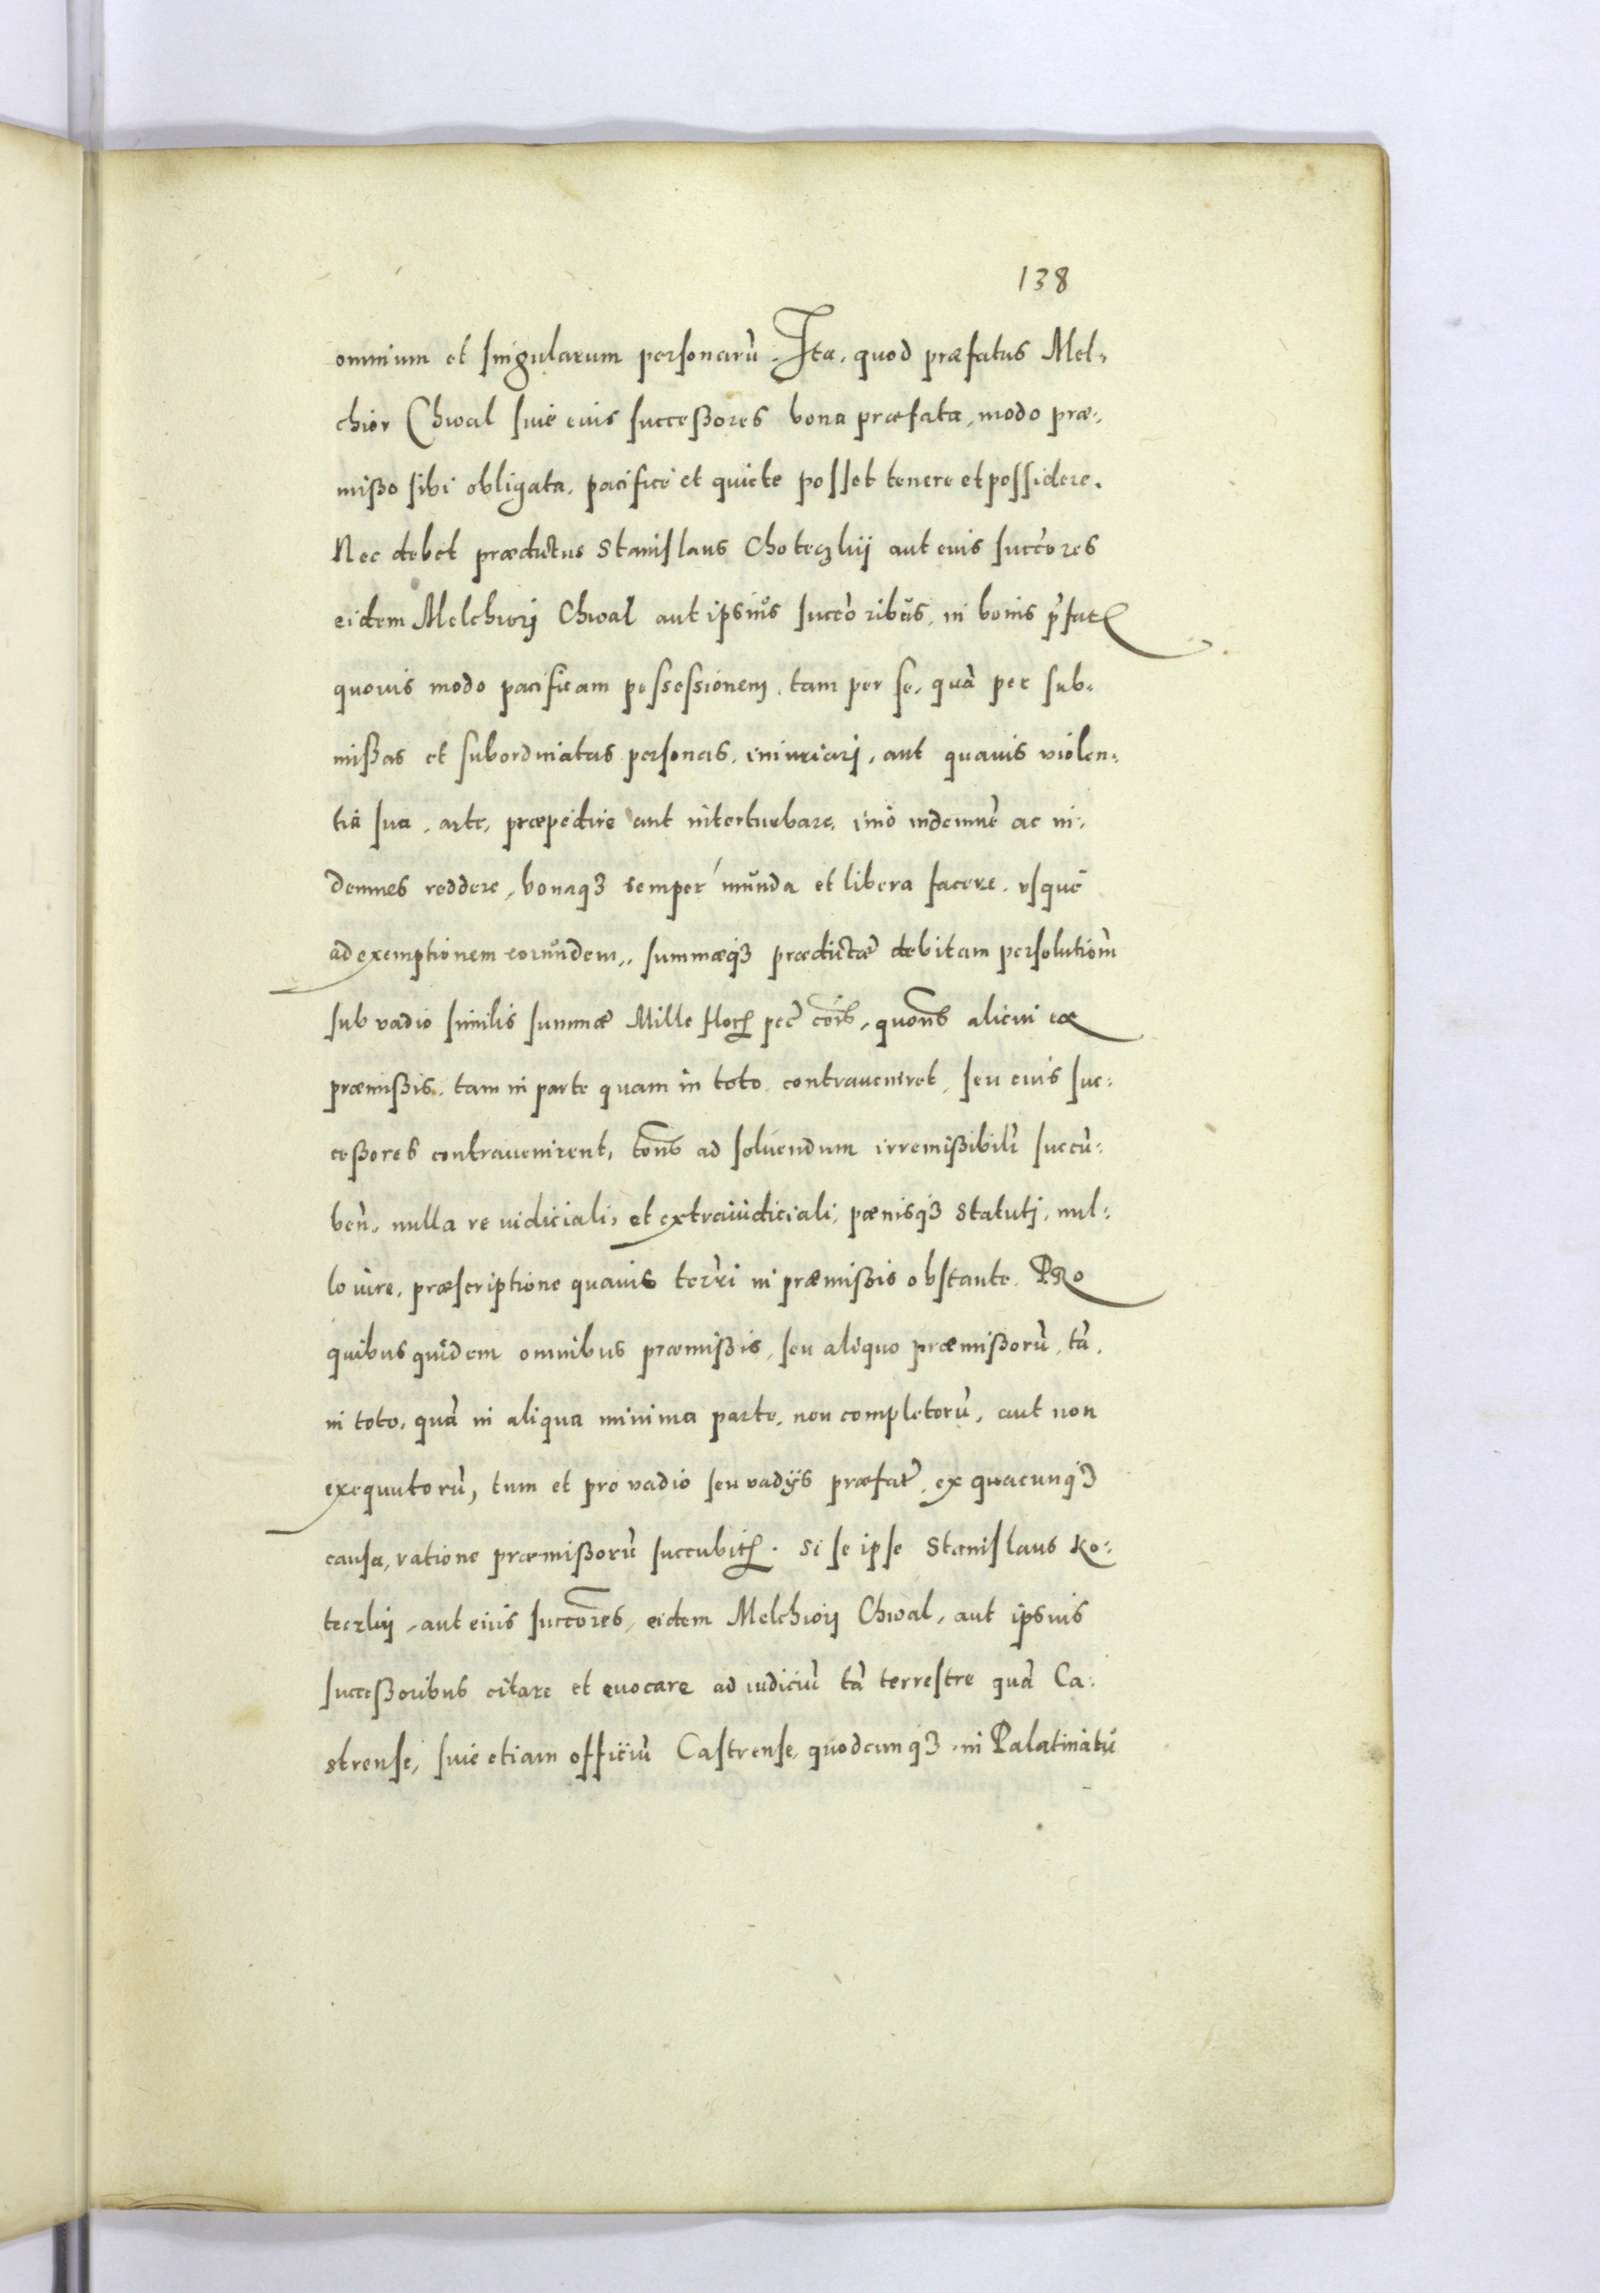 138
omnium et singularum personarũ. Ita, quod præfatus Mel-
chior Chwal siue eius successores bona præfata, modo præ-
misso sibi obligata, pacifice et quiete posset tenere et possidere.
Nec debet prædictus Stanislaus Choteczkij aut eius succõres
eidem Melchiorj Chwal aut ipsius succõribus, in bonis p̃fat
quouis modo pacificam possessionem, tam per se, quã per sub-
missas et subordinatas personas, iniuriarj, aut quauis violen-
tia sua, arte, præpedire aut interturbare, imò indemnẽ ac in-
demnes reddere, bonaqꝫ semper munda et libera facere, vsque
ad exemptionem eorundem, summæqꝫ prædictæ debitam persolutionẽ
sub vadio similis summæ Mille flor pec̃ cõis, quotĩes alicui ex
præmissis, tam in parte quam in toto contraueniret, seu eius suc-
cessores contrauenirent, totĩes ad soluendum irremissibilr̃ succũ-
ben̄, nulla re iudiciali, et extraiudiciali, pœnisqꝫ Statutj, nul-
lo iure, præscriptione quauis terr̃i in præmissis obstante. PRo
quibus quidem omnibus præmissis, seu aliquo præmissorũ, tã
in toto, quã in aliqua minima parte, non completorũ, aut non
exequutorũ, tum et pro vadio seu vadijs præfat̃, ex quacunqꝫ
causa, ratione præmissorũ succubit. Si se ipse Stanislaus Ko-
teczkij, aut eius succõres, eidem Melchiorj Chwal, aut ipsius
successoribus citare et euocare ad iudiciũ tã terrestre quã Ca-
strense, siue etiam officiũ Castrense, quodcunqꝫ in Palatinatu